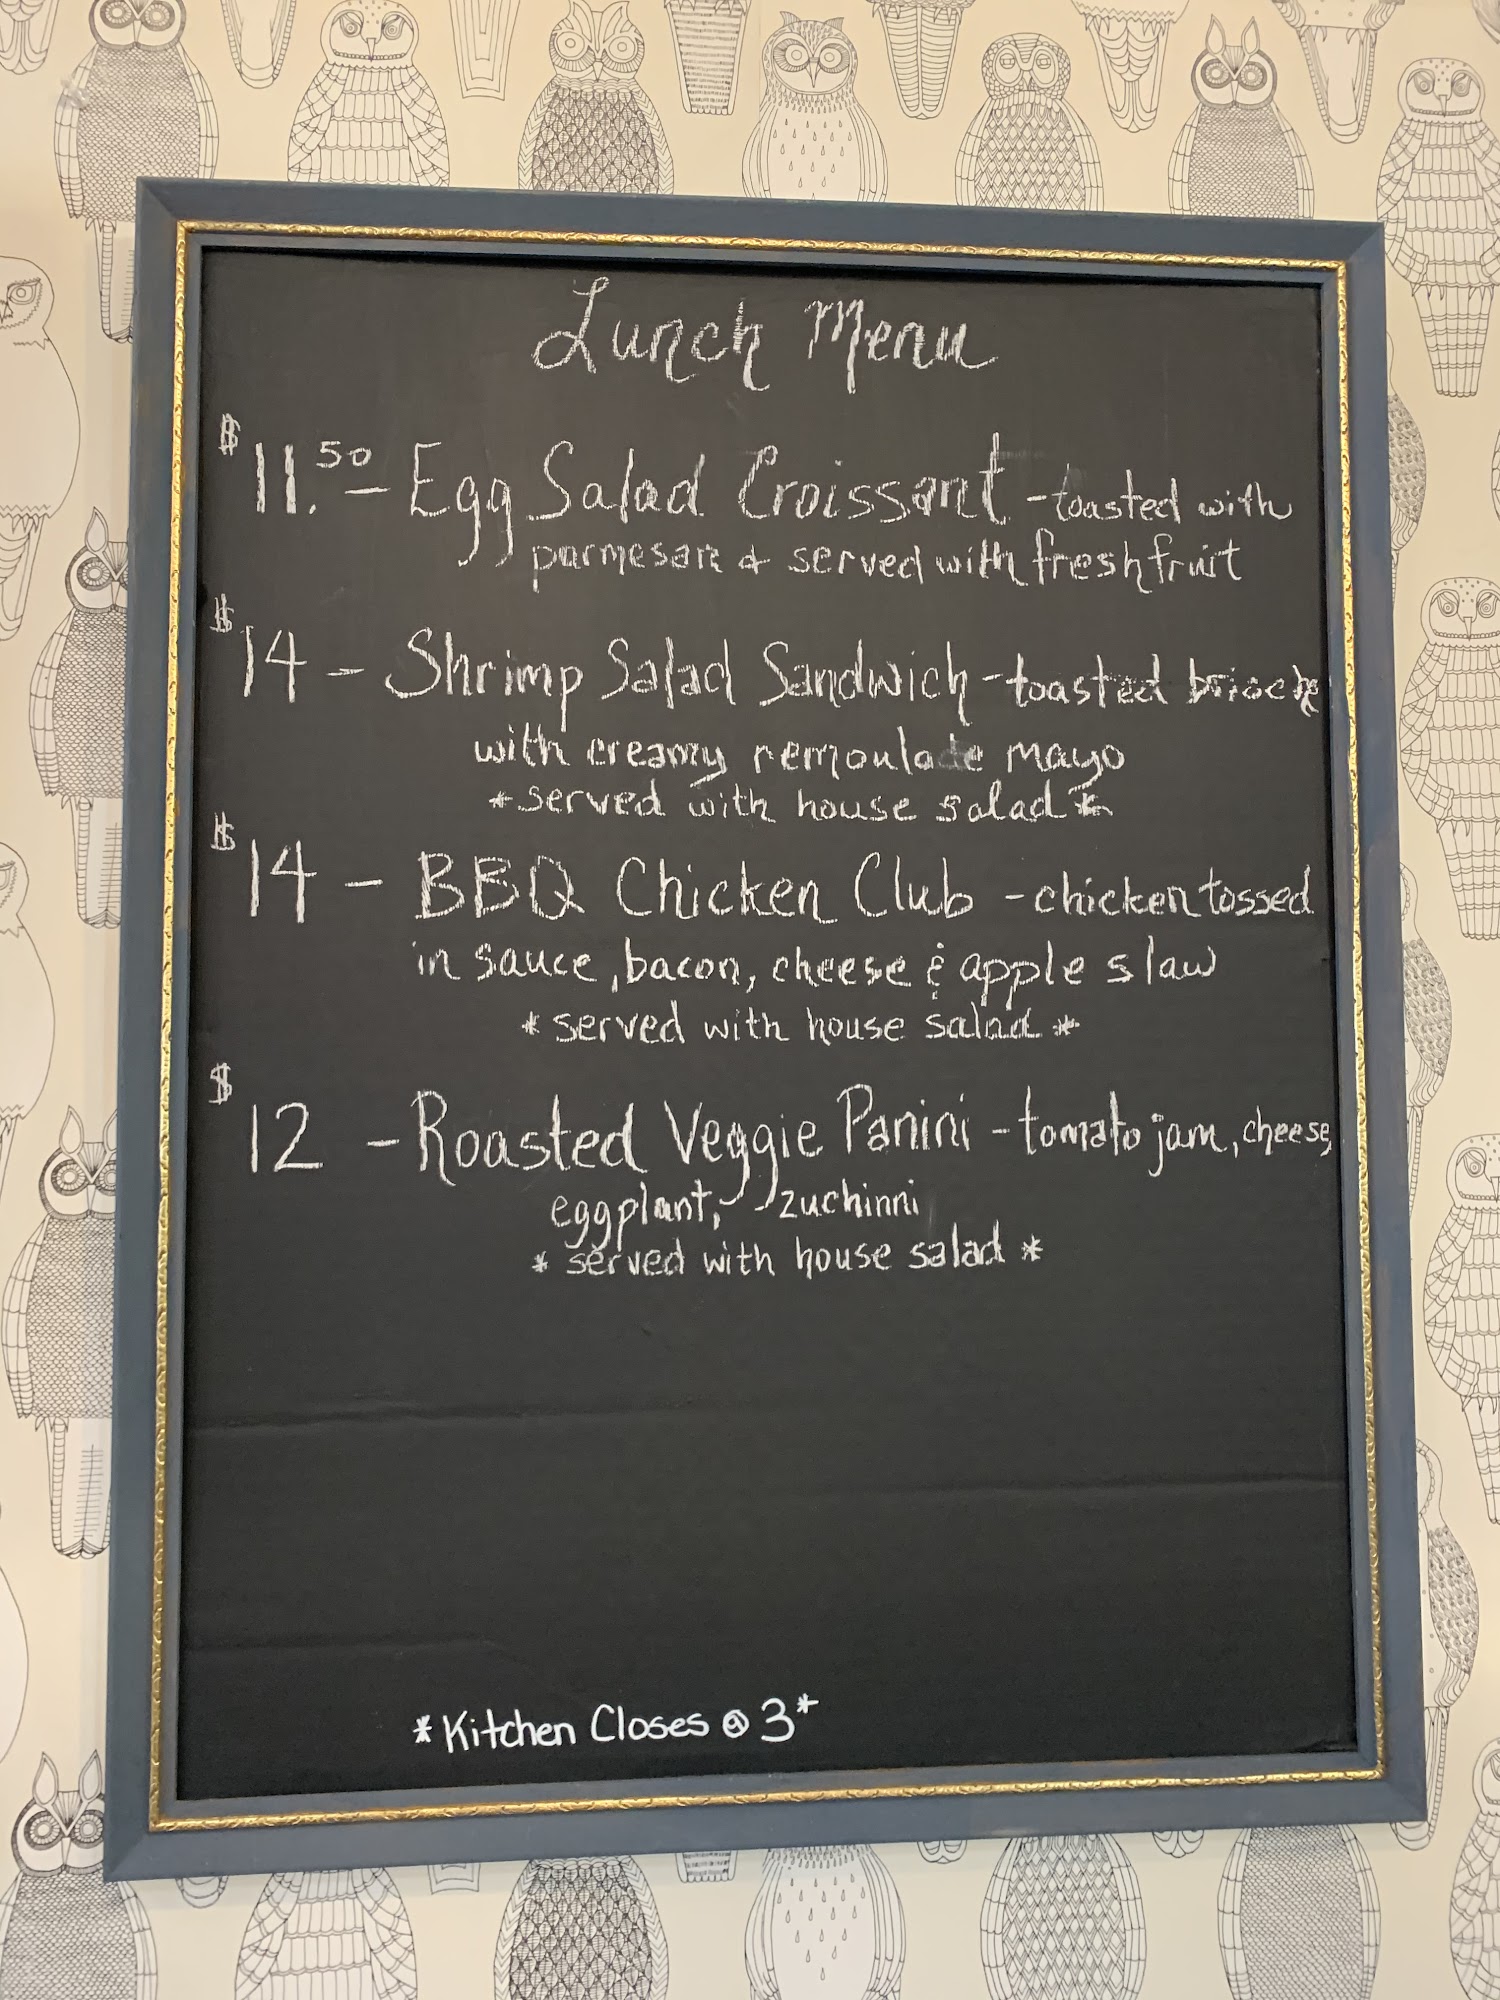 Lunch Menu
$11.50 - Egg Salad Croissant - toasted with
parmesan & served with fresh fruit
$14 - Shrimp Salad Sandwich - toasted brioche
with creamy remoulade mayo
*served with house salad*
$14 - BBQ Chicken Club - chicken tossed
in sauce, bacon, cheese & apple slaw
*served with house salad*
$12 - Roasted Veggie Panini - tomato jam, cheese,
eggplant, zuchinni
*served with house salad*
*Kitchen Closes @ 3*